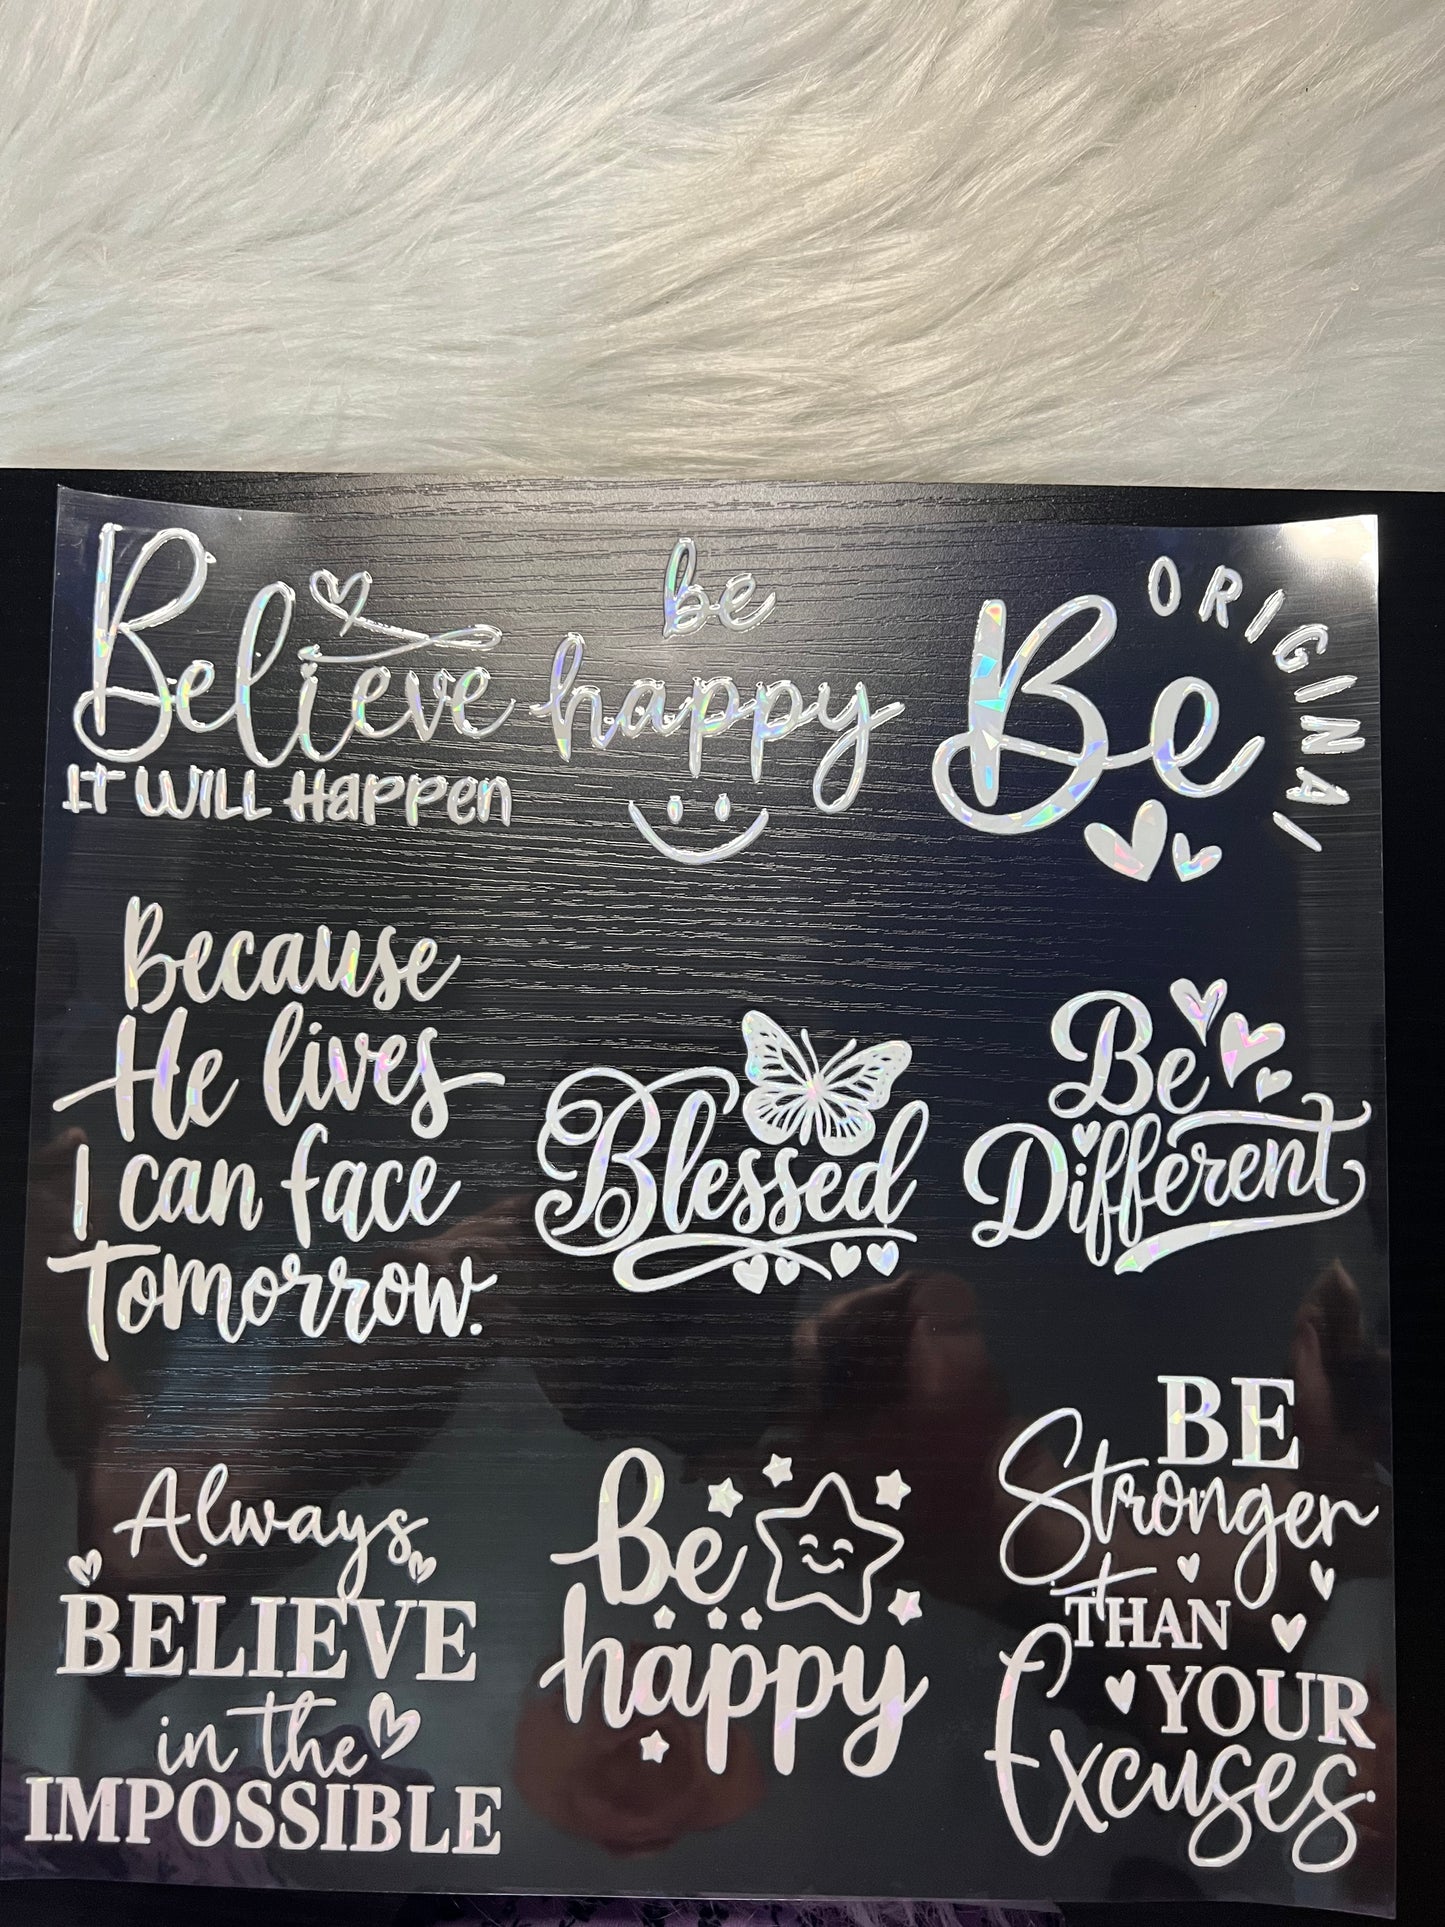 Believe
IT WILL Happen
be
happy
Be
ORIGINAL
Because
He lives
I can face
Tomorrow.
Blessed
Be
Different
Always
BELIEVE
in the
IMPOSSIBLE
Be
happy
BE
Stronger
THAN
YOUR
Excuses